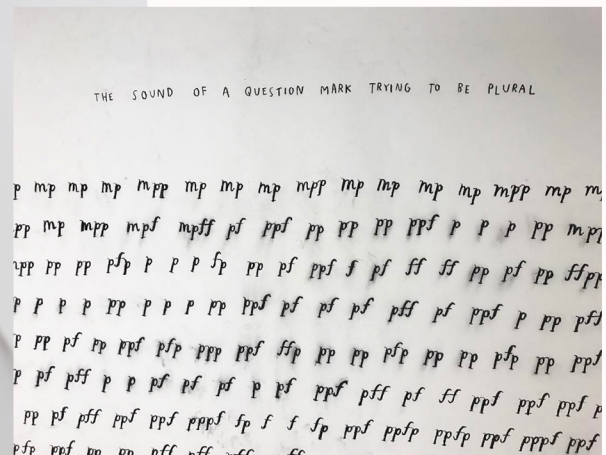 THE SOUND OF A QUESTION MARK TRYING TO BE PLURAL
p mp mp mp mpp mp mp mp mpp mp mp mp mp mpp mp
pp mp mpp mpf mpff pf ppf pp pp pp ppf p p p pp
pp pp pfp p p p fp pp pf ppf f pf ff ff pp pf pp
p p p p pp p p p pp ppf pf pf pf pff pf ppf p pp pff
p pp pf pp ppf pfp ppp ppf ffp pp pp pfp pp pp pfp pp ppf
p pf pff p p pf pf pf p pf ppf pff pf ff ppf ppf p
pp pf pff ppf ppf pppf fp f f fp ppf ppfp ppfp ppf pppf ppf